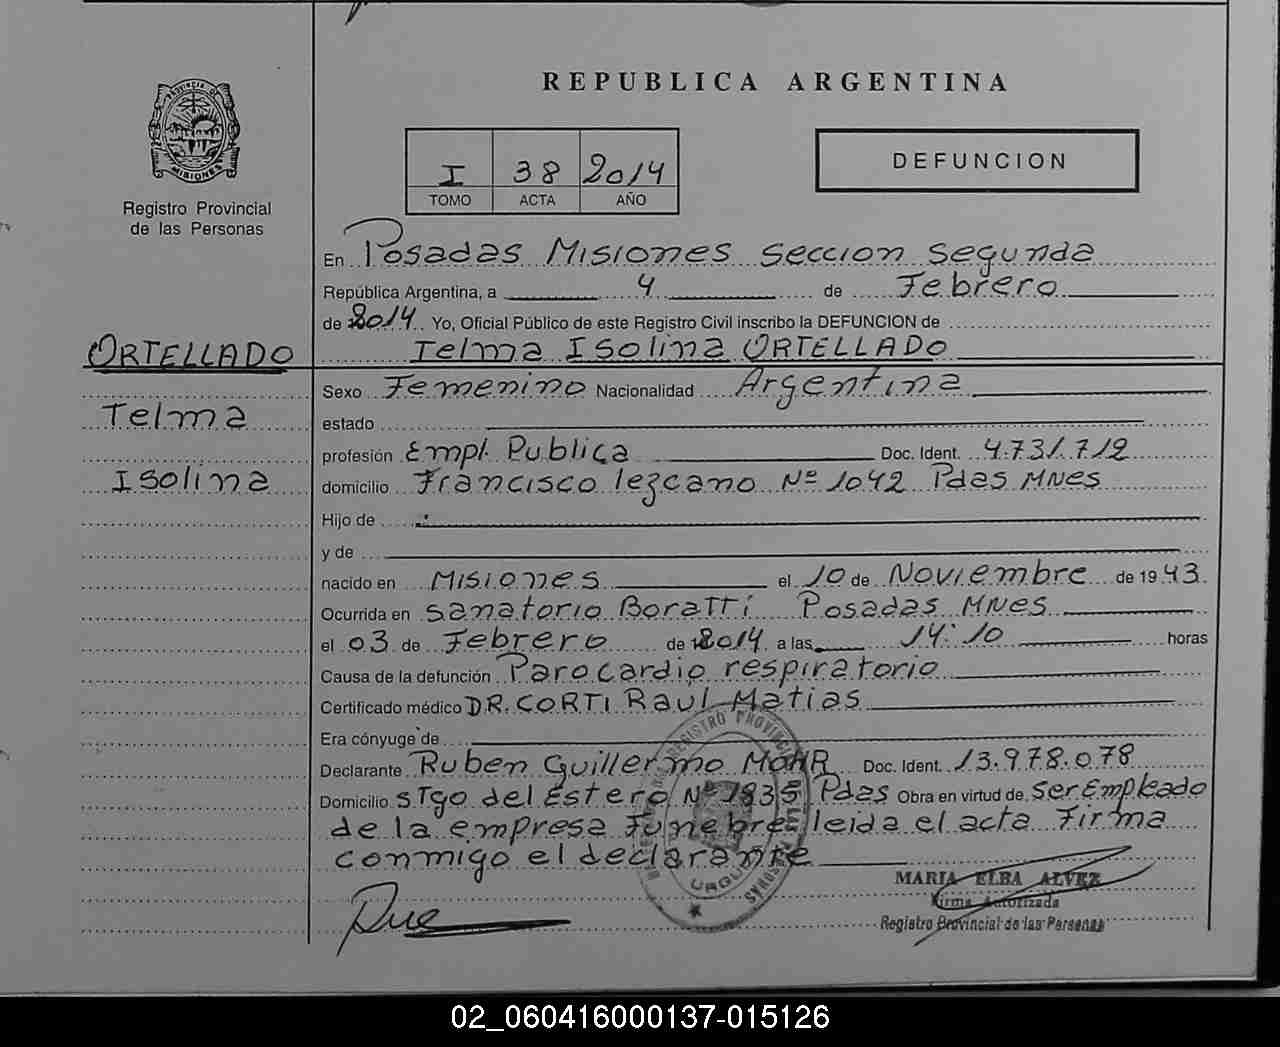 REPUBLICA ARGENTINA
PROVINCIA DE
MISIONES
Registro Provincial
de las Personas
I 38 2014
TOMO ACTA AÑO
DEFUNCION
En Posadas Misiones seccion segunda
República Argentina, a 4 de Febrero
de 2014 Yo, Oficial Público de este Registro Civil inscribo la DEFUNCION de
ORTELLADO
Telma Isolina ORTELLADO
Sexo Femenino Nacionalidad Argentina
Telma
estado
profesión Empl. Publica Doc. Ident. 4.731.712
Isolina
domicilio Francisco lezcano Nº 1042 Pdas MNes
Hijo de
y de
nacido en Misiones el 10 de Noviembre de 1943
Ocurrida en sanatorio Boratti Posadas MNes
el 03 de Febrero de 2014 a las 14:10 horas
Causa de la defunción Paro cardio respiratorio
Certificado médico DR. CORTI Raúl Matias
Era cónyuge de
Declarante Ruben Guillermo MOHR Doc. Ident. 13.978.078
Domicilio sTgo del Estero Nº 1835 Pdas Obra en virtud de ser Empleado
de la empresa Funebre, leida el acta Firma
conmigo el declarante
MARIA ELBA ALVEZ
Firma Autorizada
Registro Provincial de las Personas
02_060416000137-015126